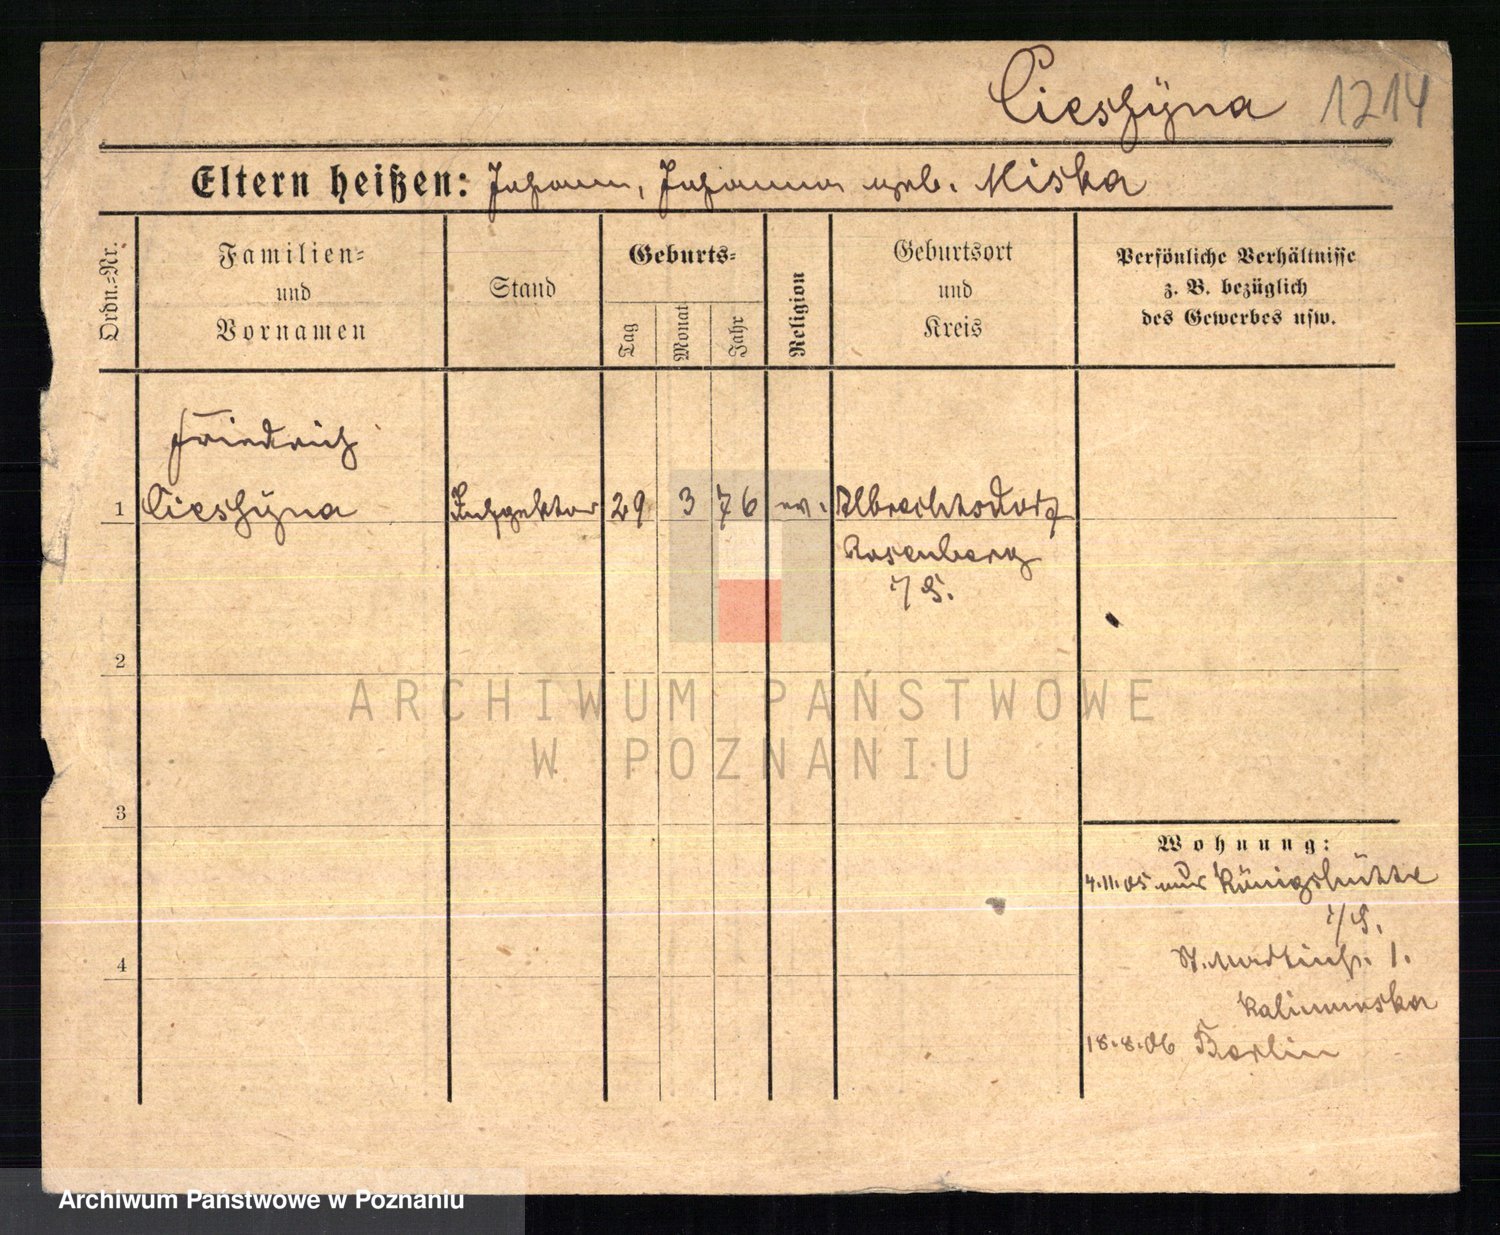 Cieshÿna 1214
Eltern heißen: Johann, Johanna geb. Miska
Ordn.-Nr.
Familien-
und
Vornamen
Stand
Geburts-
Tag
Monat
Jahr
Religion
Geburtsort
und
Kreis
Persönliche Verhältnisse
z. B. bezüglich
des Gewerbes usw.
Friedrich
1 Cieshÿna Inspektor 29 3 76 ev. Albrechtsdorf
Rosenberg
i/S.
2
3
4
Wohnung:
4.11.05 aus Königshütte
i/S.
St. Martinstr. 1.
18.8.06 Berlin
ARCHIWUM PAŃSTWOWE
W POZNANIU
Archiwum Państwowe w Poznaniu